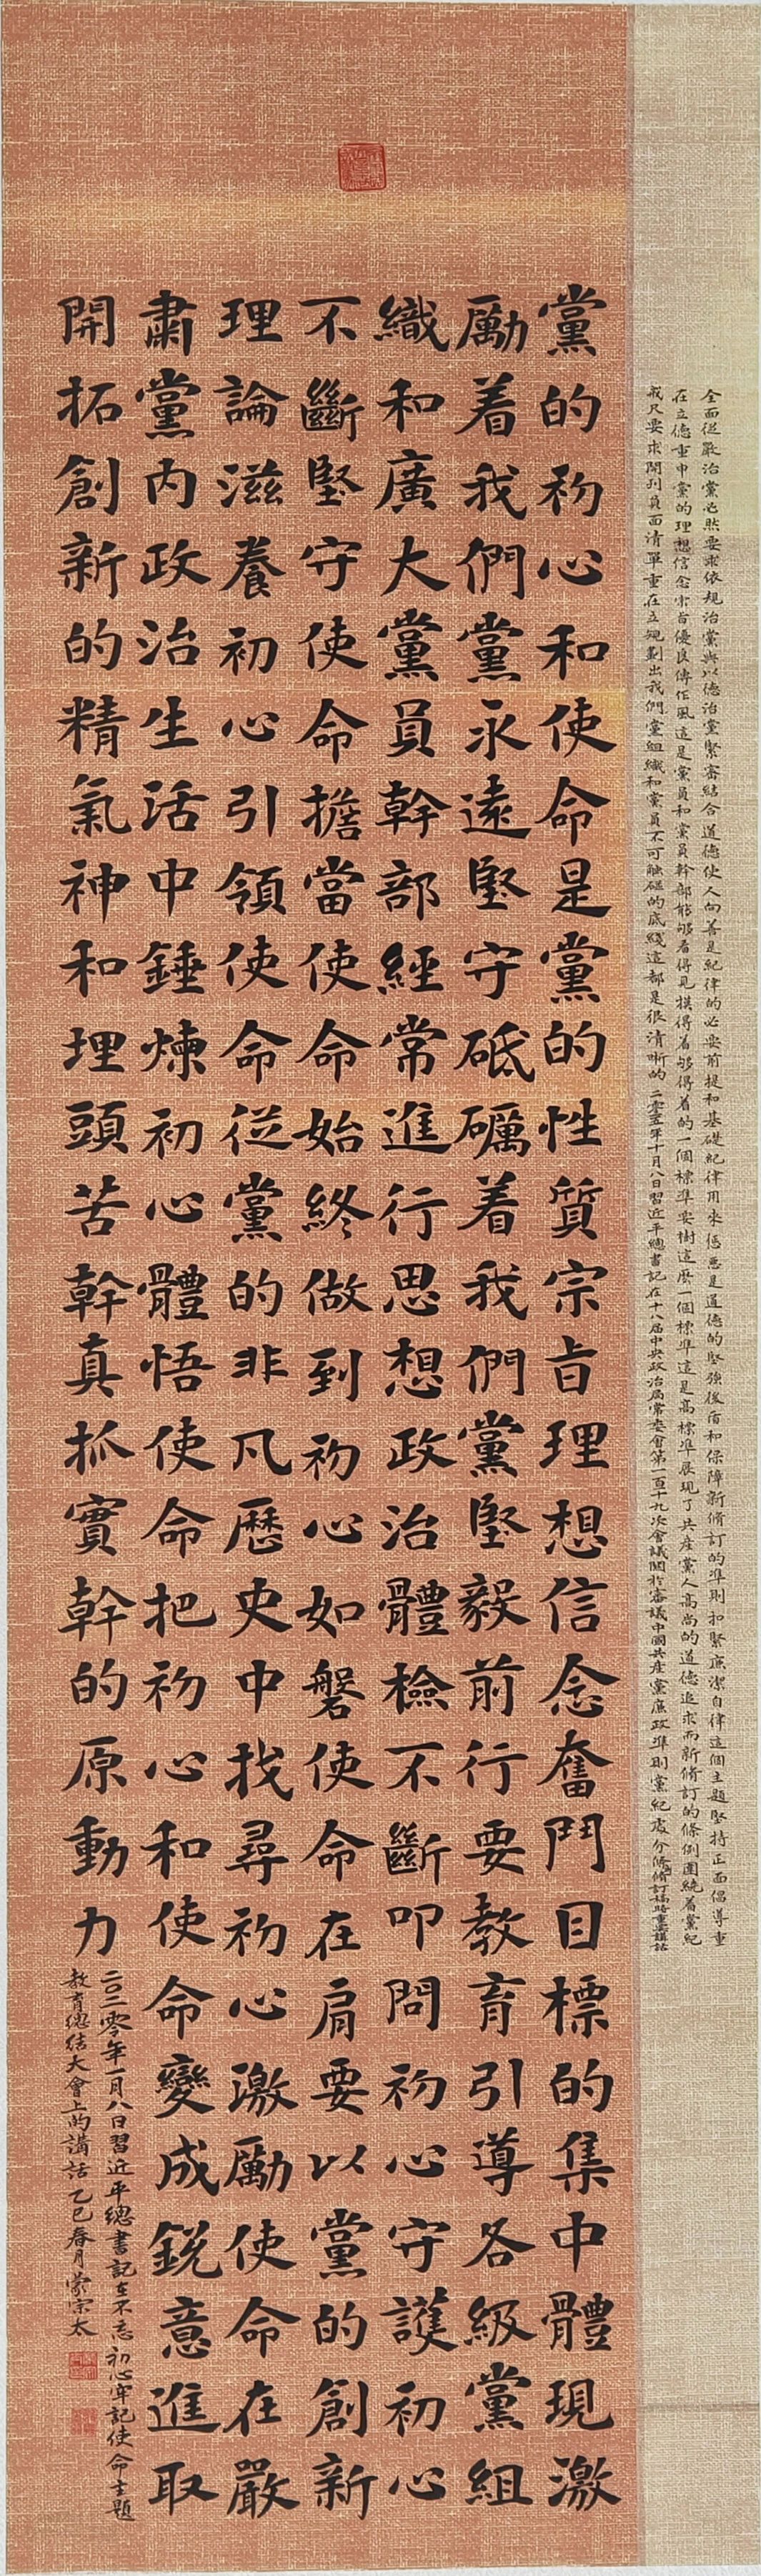 全面從嚴治黨必然要求依規治黨與以德治黨緊密結合道德使人向善是紀律的必要前提和基礎紀律用來懲惡是道德的堅強後盾和保障新脩訂的準則扣緊廉潔自律這個主題堅持正面倡導重
在立德重申黨的理想信念宗旨優良傳作風這是黨員和黨員幹部能够看得見摸得着够得着的一個標準要樹這麼一個標準這是高標準展現了共産黨人高尚的道德追求而新脩訂的條例圍繞着黨紀
戒尺要求開列負面清單重在立規劃出我們黨組織和黨員不可触碰的底綫這都是很清晰的 二零一五年十月八日習近平總書記在十八届中央政治局常委會第一百十九次會議關於審議中國共産黨廉政準則黨紀處分條脩訂稿時重要講話
黨的初心和使命是黨的性質宗旨理想信念奮鬥目標的集中體現激
勵着我們黨永遠堅守砥礪着我們黨堅毅前行要教育引導各級黨組
織和廣大黨員幹部經常進行思想政治體檢不斷叩問初心守護初心
不斷堅守使命擔當使命始終做到初心如磐使命在肩要以黨的創新
理論滋養初心引領使命從黨的非凡歷史中找尋初心激勵使命在嚴
肅黨内政治生活中錘煉初心體悟使命把初心和使命變成鋭意進取
開拓創新的精氣神和埋頭苦幹真抓實幹的原動力
二〇二零年一月八日習近平總書記在不忘初心牢記使命主題
教育總結大會上的講話 乙巳春月蒙宗太